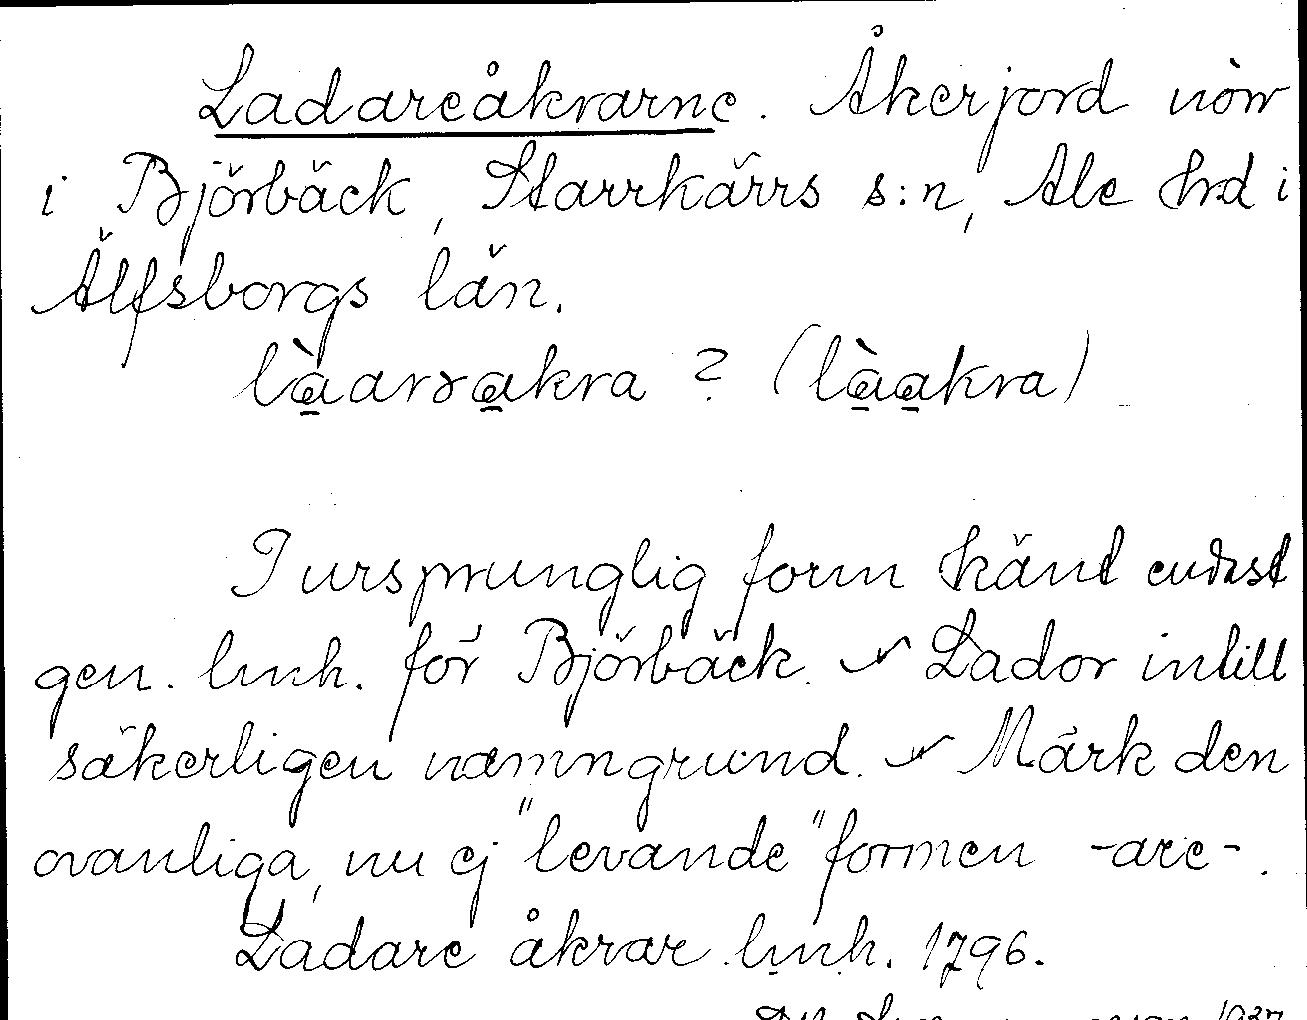 Ladareåkrarne. Åkerjord norr
i Björbäck, Starrkärrs s:n, Ale hd i
Älfsborgs län.
làarɤakra ? (làakra)
I ursprunglig form känt endast
gen. lmh. för Björbäck. Lador intill
säkerligen namngrund. Märk den
ovanliga, nu ej "levande" formen -are-.
Ladare åkrar lmh. 1796.
1937